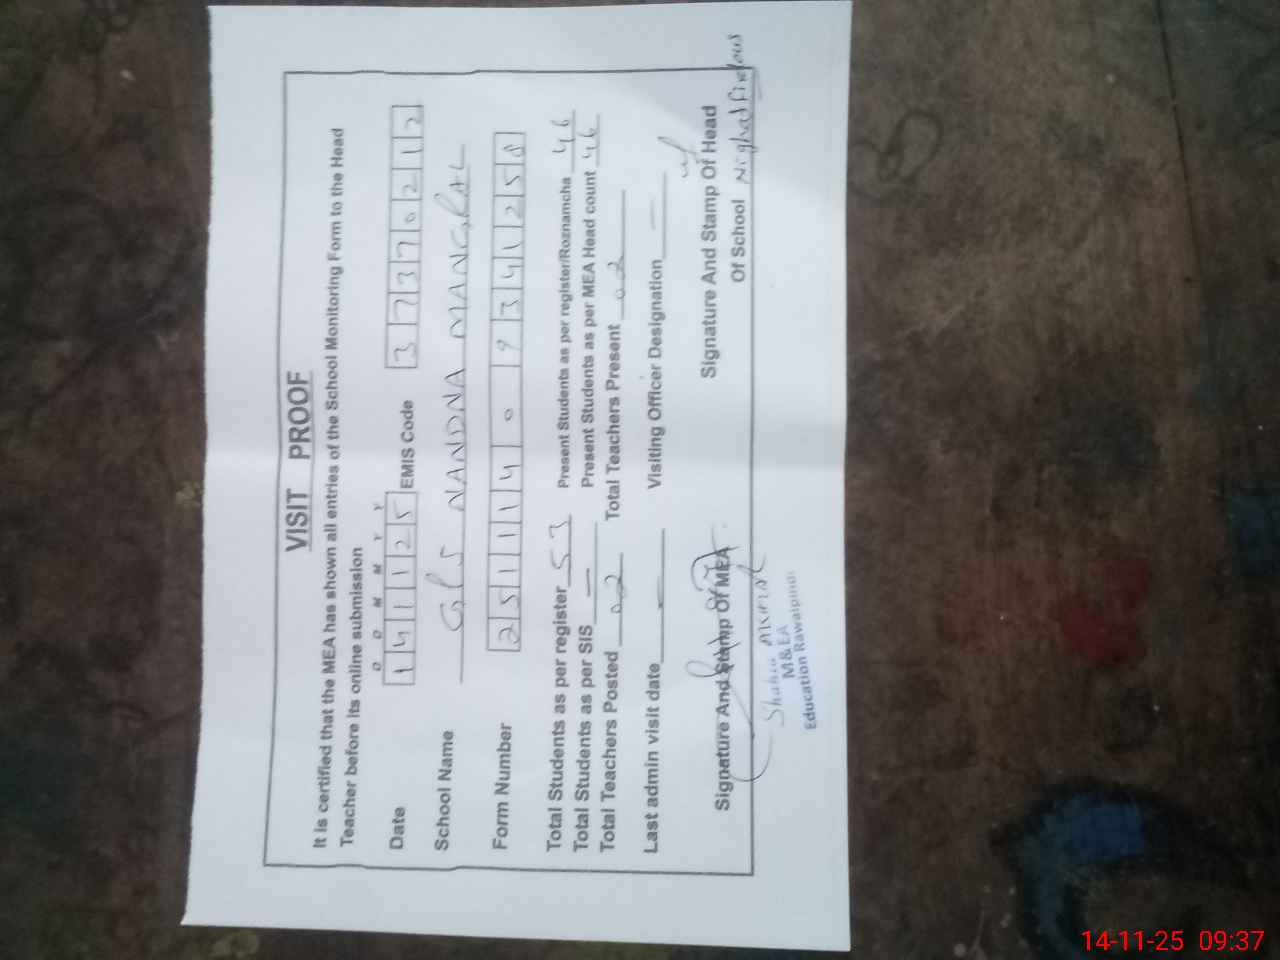 VISIT PROOF
It is certified that the MEA has shown all entries of the School Monitoring Form to the Head
Teacher before its online submission
D D M M Y Y
Date 141125 EMIS Code 37370212
School Name GPS NANDNA MANGRAL
Form Number 2511140 09341258
Total Students as per register 53 Present Students as per register/Roznamcha 46
Total Students as per SIS — Present Students as per MEA Head count 46
Total Teachers Posted 02 Total Teachers Present 02
Last admin visit date — Visiting Officer Designation —
Signature And Stamp Of MEA Signature And Stamp Of Head
Of School Nighat Firdous
Shahid
M&EA
Education Rawalpindi
14-11-25 09:37